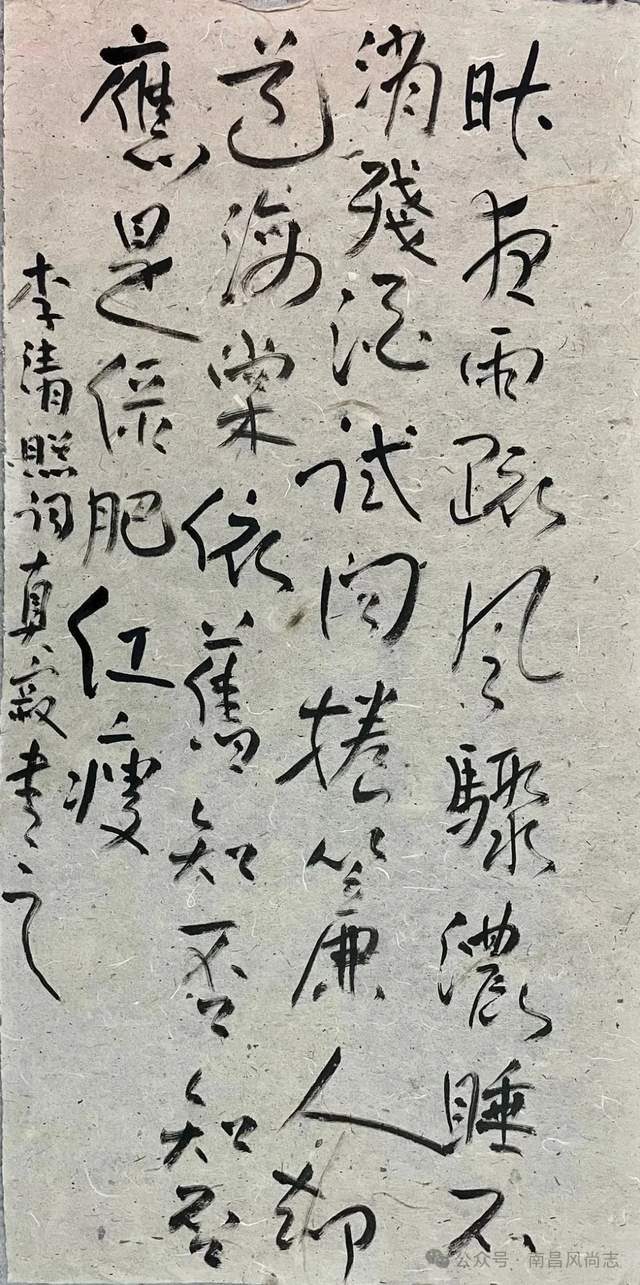 昨夜雨疎风驟濃睡不
消殘酒试问捲簾人却
道海棠依舊知否知否
應是緑肥红瘦
李清照词真寂书之
公众号·南昌风尚志